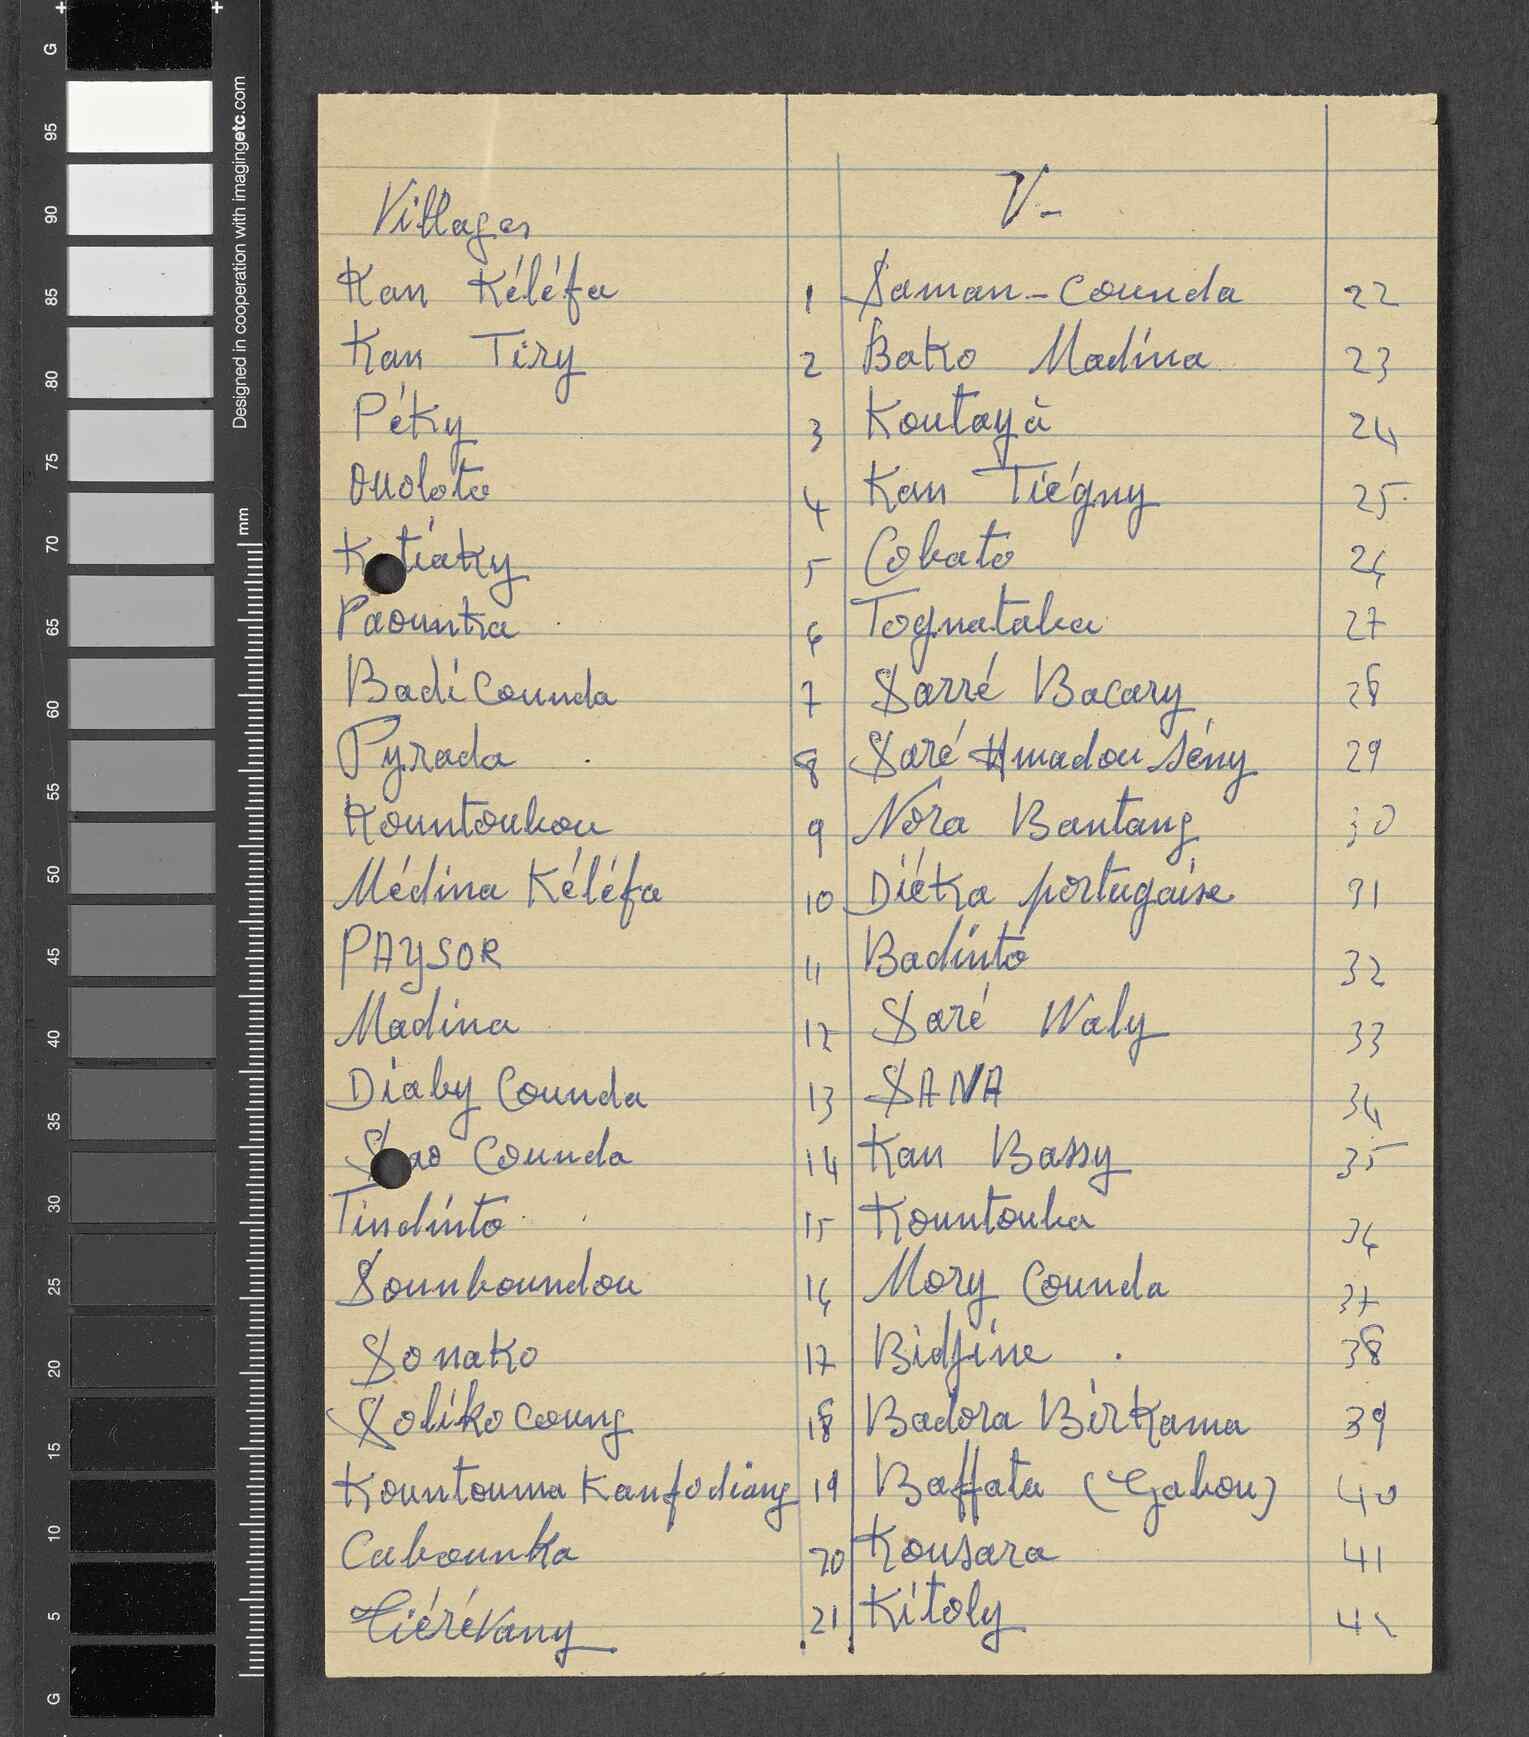 Villages
Kan Kéléfa 1
Kan Tiry 2
Péky 3
Ouoloto 4
K tiaky 5
Paounka 6
Badi Counda 7
Pyrada 8
Kountoubou 9
Médina Kéléfa 10
PAYSOR 11
Madina 12
Diaby Counda 13
S ao Counda 14
Tindinto 15
Sounboundou 16
Sonako 17
Solikocoung 18
Kountouma Kanfodiang 19
Cabounka 20
Tiérévany 21
V-
Saman-Counda 22
Bako Madina 23
Koutaya 24
Kan Tiégny 25
Cobato 26
Tognataba 27
Sarré Bacary 28
Saré Amadou Sény 29
Nora Bantang 30
Diéka portugaise 31
Badinto 32
Saré Waly 33
SANA 34
Kan Bassy 35
Kountouba 36
Mory Counda 37
Bidjine 38
Badora Birkama 39
Baffata (Gabou) 40
Kousara 41
Kitoly 42
G
95
90
85
80
75
70
65
60
55
50
45
40
35
30
25
20
15
10
5
G
mm
Designed in cooperation with imagingetc.com